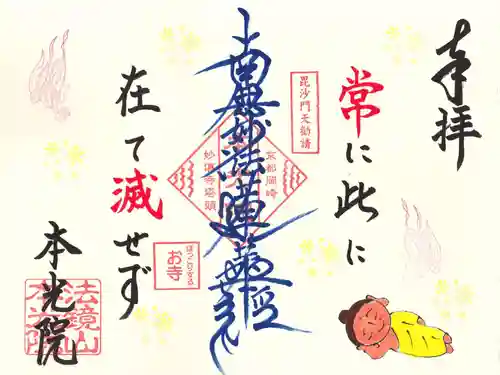 奉拝
常に此に
毘沙門天勧請
京都岡崎
南無妙法蓮華経
妙傳寺塔頭
ほっこりする
お寺
在て滅せず
本光院
法鏡山
本光院